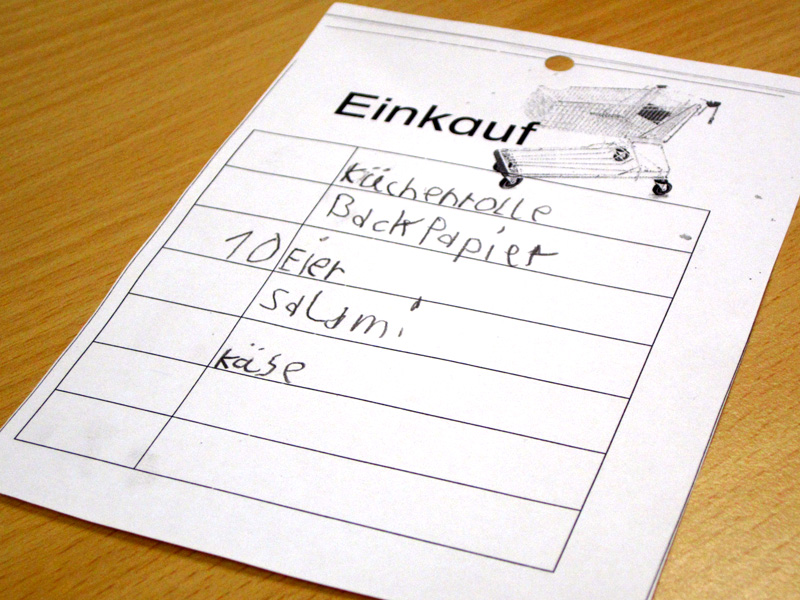 Einkauf
Küchenrolle
BackPapier
10 Eier
Salami
Käse